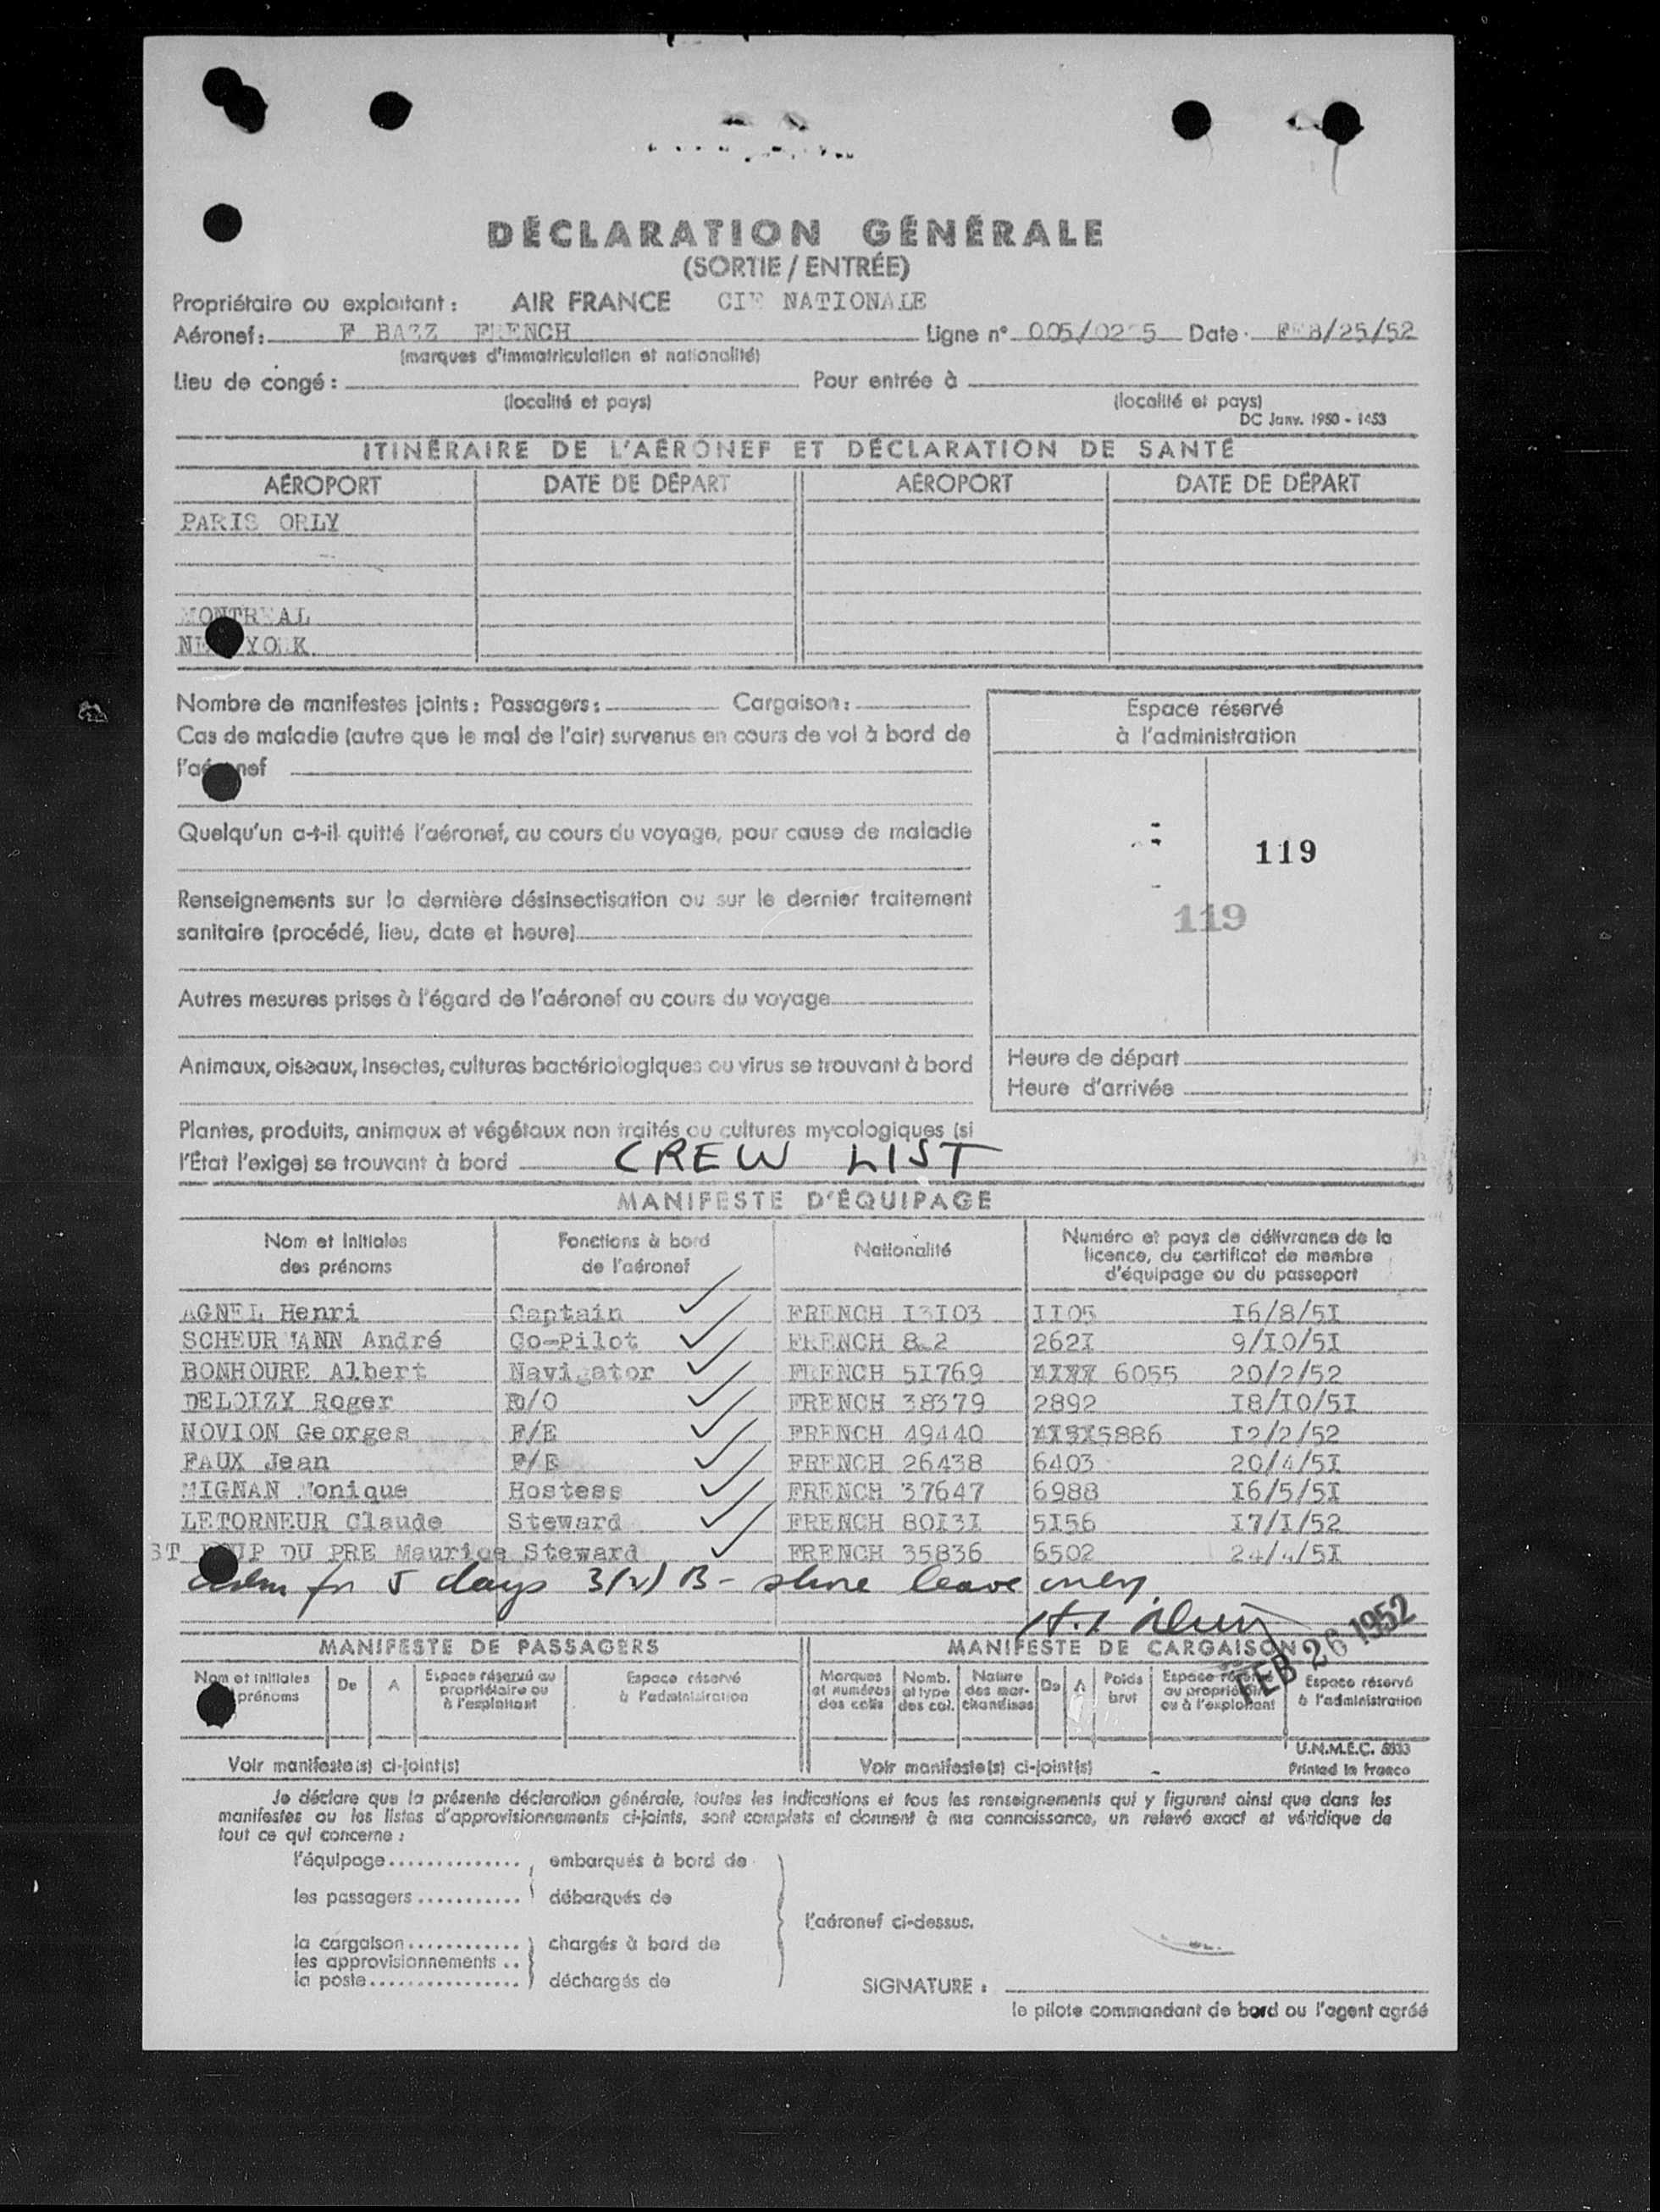 DÉCLARATION GÉNÉRALE
(SORTIE / ENTRÉE)
Propriétaire ou exploitant : AIR FRANCE CIE NATIONALE
Aéronef : F BAZZ FRENCH Ligne n° 005/02 5 Date FEB/25/52
(marques d'immatriculation et nationalité)
Lieu de congé : Pour entrée à
(localité et pays) (localité et pays)
DC Janv. 1950 - 1453
ITINÉRAIRE DE L'AÉRONEF ET DÉCLARATION DE SANTÉ
AÉROPORT DATE DE DÉPART AÉROPORT DATE DE DÉPART
PARIS ORLY
MONTREAL
NEW YORK
Nombre de manifestes joints : Passagers : Cargaison :
Cas de maladie (autre que le mal de l'air) survenus en cours de vol à bord de
l'aéronef
Quelqu'un a-t-il quitté l'aéronef, au cours du voyage, pour cause de maladie
Renseignements sur la dernière désinsectisation ou sur le dernier traitement
sanitaire (procédé, lieu, date et heure)
Autres mesures prises à l'égard de l'aéronef au cours du voyage
Animaux, oiseaux, insectes, cultures bactériologiques ou virus se trouvant à bord
Plantes, produits, animaux et végétaux non traités ou cultures mycologiques (si
l'État l'exige) se trouvant à bord CREW LIST
Espace réservé
à l'administration
119
119
Heure de départ
Heure d'arrivée
MANIFESTE D'ÉQUIPAGE
Nom et initiales des prénoms Fonctions à bord de l'aéronef Nationalité Numéro et pays de délivrance de la licence, du certificat de membre d'équipage ou du passeport
AGNEL Henri Captain FRENCH I3I03 II05 I6/8/5I
SCHEURMANN André Co-Pilot FRENCH 8 2 262I 9/I0/5I
BONHOURE Albert Navigator FRENCH 5I769 6055 20/2/52
DELOIZY Roger R/O FRENCH 38379 2892 I8/I0/5I
NOVION Georges F/E FRENCH 49440 5886 I2/2/52
FAUX Jean F/E FRENCH 26438 6403 20/4/5I
MIGNAN Monique Hostess FRENCH 37647 6988 I6/5/5I
LETORNEUR Claude Steward FRENCH 80I3I 5156 I7/I/52
ST LOUP DU PRE Maurice Steward FRENCH 35836 6502 24/4/5I
Adm for 5 days 3(2) B - shore leave only
FEB 26 1952
MANIFESTE DE PASSAGERS MANIFESTE DE CARGAISON
Nom et initiales prénoms De A Espace réservé au propriétaire ou à l'exploitant Espace réservé à l'administration Marques et numéros des colis Nomb. et type des col. Nature des mar- chandises De A Poids brut Espace réservé au propriétaire ou à l'exploitant Espace réservé à l'administration
U.N.M.E.C. 5933
Voir manifeste(s) ci-joint(s) Voir manifeste(s) ci-joint(s) Printed in France
Je déclare que la présente déclaration générale, toutes les indications et tous les renseignements qui y figurent ainsi que dans les
manifestes ou les listes d'approvisionnements ci-joints, sont complets et donnent à ma connaissance, un relevé exact et véridique de
tout ce qui concerne :
l'équipage embarqués à bord de
les passagers débarqués de
l'aéronef ci-dessus.
la cargaison chargés à bord de
les approvisionnements
la poste déchargés de
SIGNATURE :
le pilote commandant de bord ou l'agent agréé